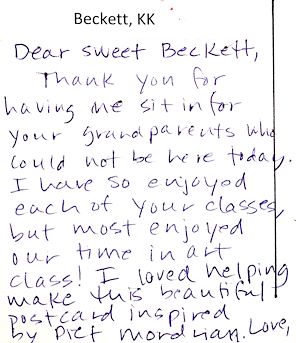 Beckett, KK
Dear sweet Beckett,
Thank you for
having me sit in for
your grandparents who
could not be here today.
I have so enjoyed
each of your classes,
but most enjoyed
our time in art
class! I loved helping
make this beautiful
postcard inspired
by Piet Mondrian. Love,